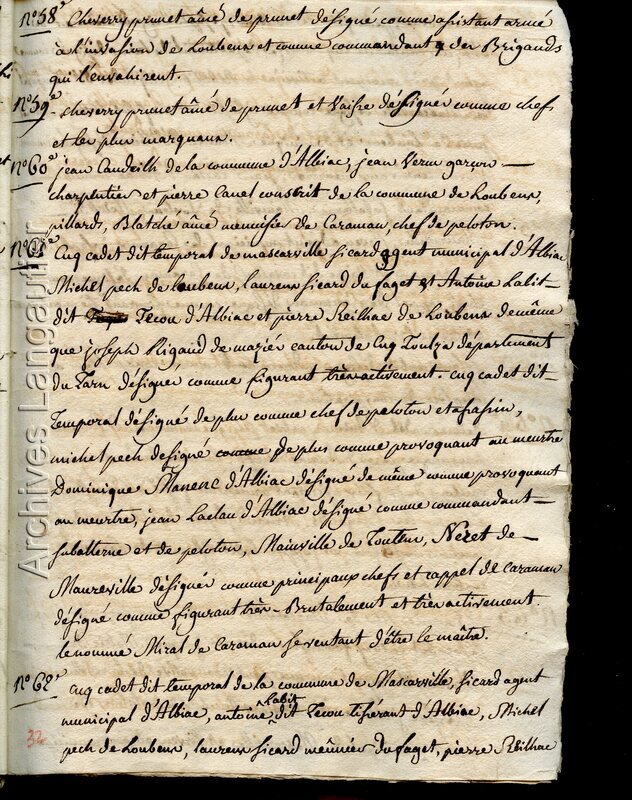 n°58e Cheverry prunet aîné de prunet désigné comme assistant armé
à l'invasion de Loubens et comme commandant des Brigands
qui l'envahirent.
n°59e cheverry prunet aîné de prunet et Vaisse désignés comme chefs
et les plus marquans.
n°60e jean Caudeilh de la commune d'Albiac, jean Verun garçon
charpentier et pierre Canel conscrit de la commune de Loubens,
pillards, Blatché aîné menuisier de Caraman, chef de peloton.
n°61e Cuq cadet dit temporal de mascarville sicard agent municipal d'Albiac
Michel pech de loubens, laurens sicard du faget et Antoine Labit
dit Tecou d'Albiac et pierre Reilhac de Loubens de même
que joseph Rigaud de maziés canton de Cuq Toulza département
du Tarn désignés comme figurant très activement. cuq cadet dit
temporal désigné de plus comme chef de peloton et assassin,
michel pech désigné comme de plus comme provoquant au meurtre
Dominique Manenc d'Albiac désigné de même comme provoquant
au meurtre, jean Laclau d'Albiac désigné comme commandant
subalterne et de peloton, Mainville de Toutens, Neret de
Maureville désignés comme principaux chefs et cappel de caraman
désigné comme figurant très Brutalement et très activement.
le nommé Miral de Caraman se ventant d'être le maître.
n°62e cuq cadet dit temporal de la commune de Mascarville, sicard agent
municipal d'Albiac, antoine Labit dit Tecou tissérant d'Albiac, Michel
pech de Loubens, laurens sicard meûnier du faget, pierre Reilhac
32
Archives Langault